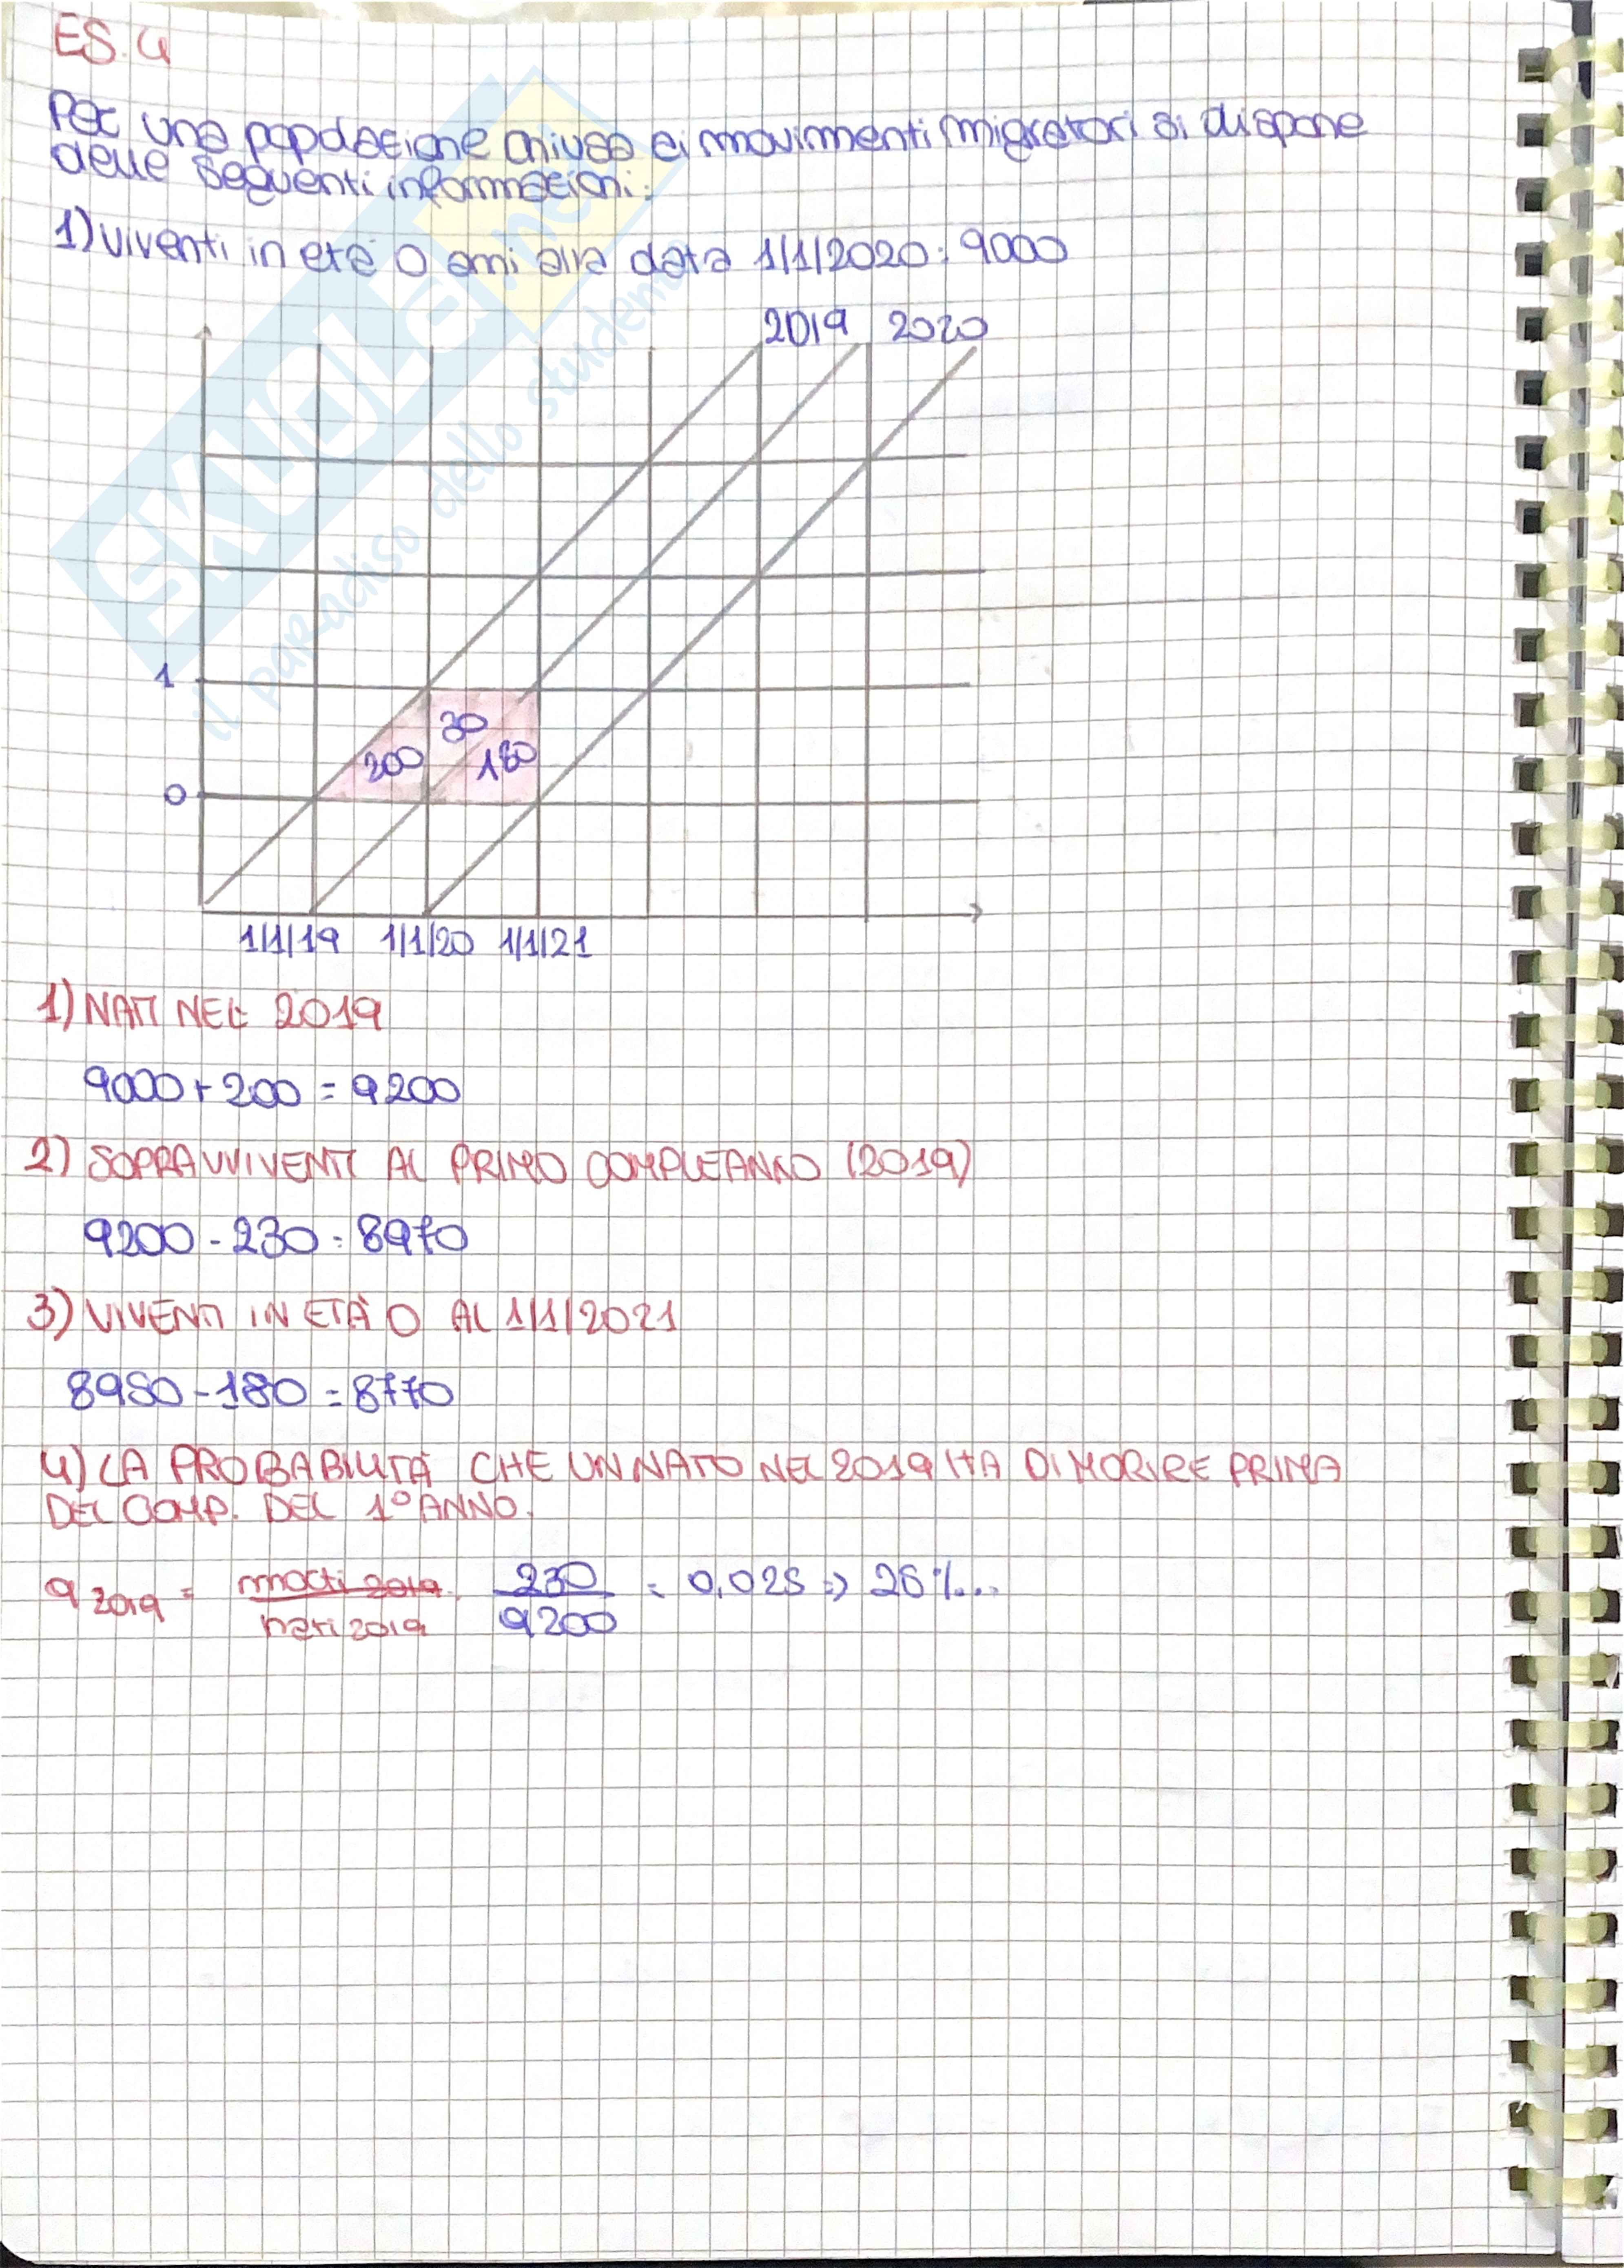 ES.4
Per una popolazione chiusa ai movimenti migratori si dispone
delle seguenti informazioni:
1) viventi in età 0 anni alla data 1/1/2020: 9000
SKUOLA.net
il paradiso dello studente
2019 2020
1
30
200 180
0
1/1/19 1/1/20 1/1/21
1) NATI NEL 2019
9000+200 = 9200
2) SOPRAVVIVENTI AL PRIMO COMPLEANNO (2019)
9200 - 230 = 8970
3) VIVENTI IN ETÀ 0 AL 1/1/2021
8950 - 180 = 8770
4) LA PROBABILITÀ CHE UN NATO NEL 2019 HA DI MORIRE PRIMA
DEL COMP. DEL 1° ANNO.
q 2019 = morti 2019 / nati 2019 = 230 / 9200 = 0,025 => 25 %..